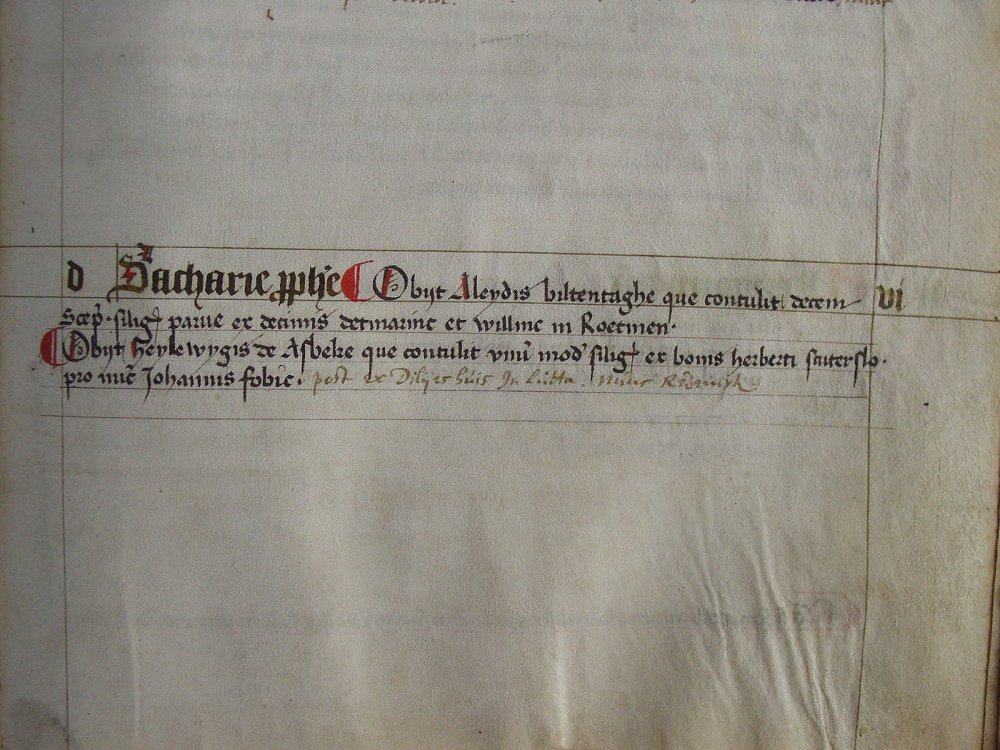 d Zacharie pphe Obijt Aleydis biltentaghe que contulit decem VI
Scep. silig. parue ex decimis detmarinc et willinc in Roetmen.
Obijt Heylewygis de Asbeke que contulit vnu mod silig. ex bonis herberti
pro nuc Johannis fobic. post ex huis In Lutta. nunc